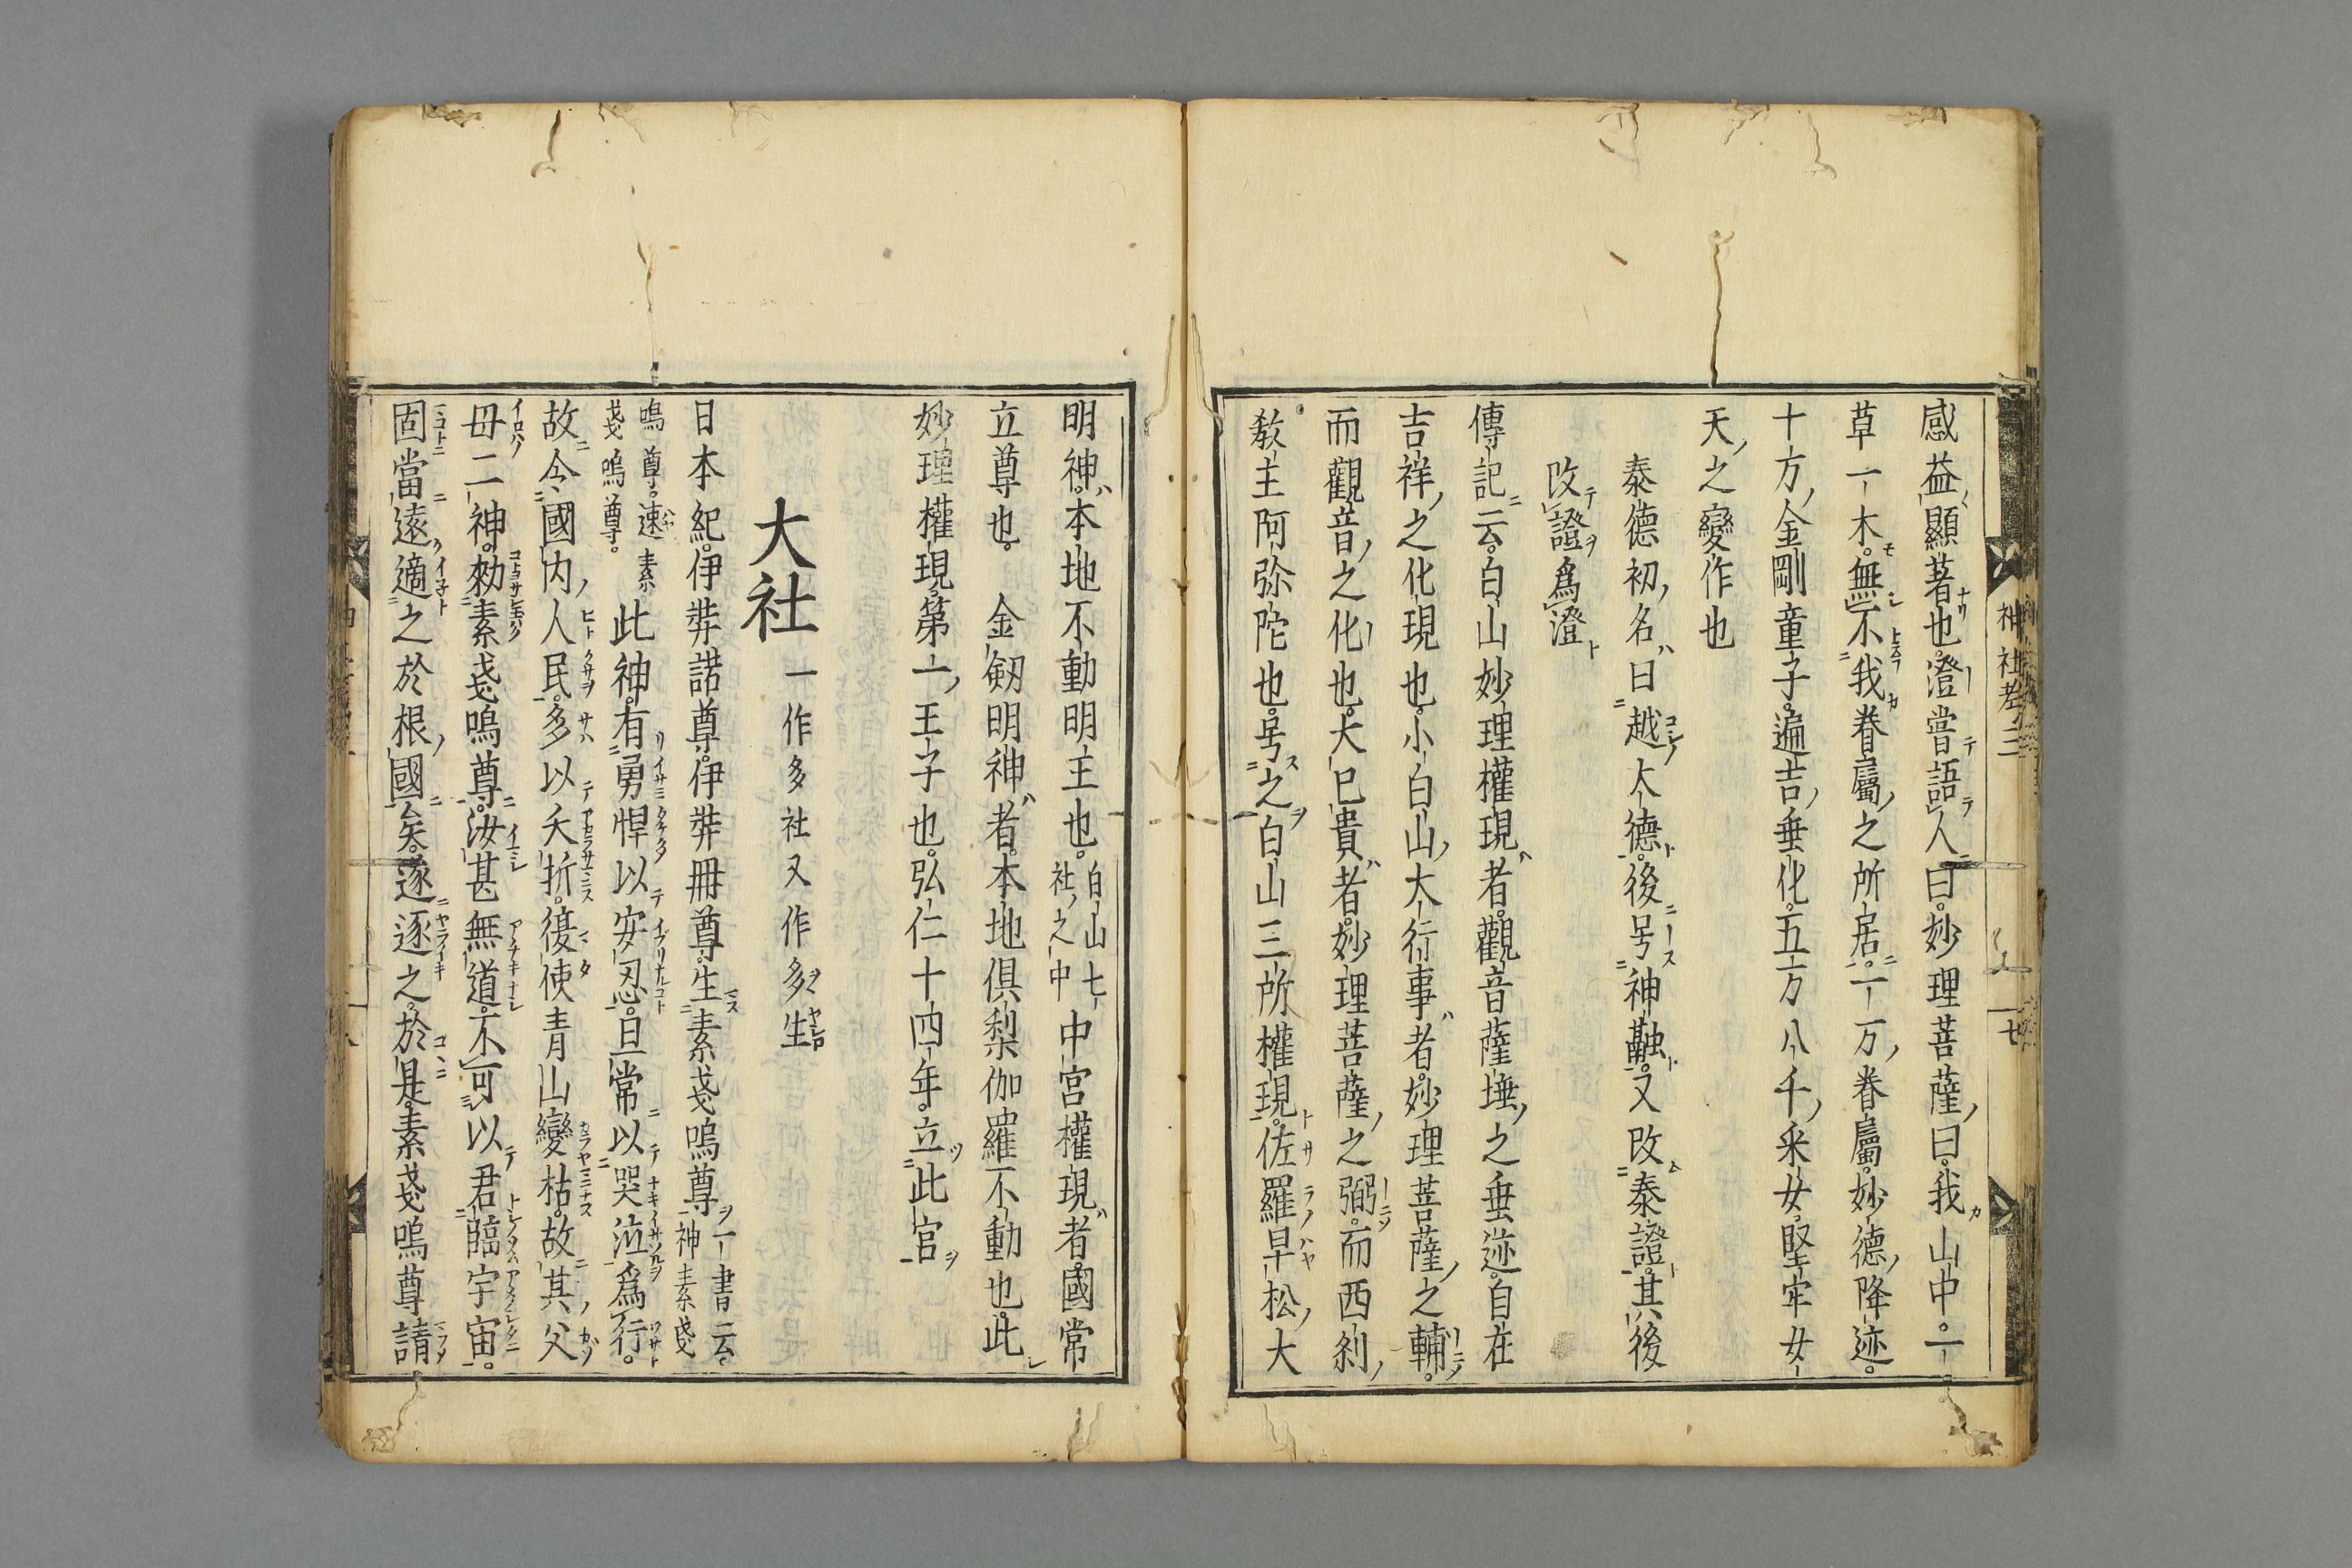 感益顯著也。澄嘗語人曰。妙理菩薩曰。我山中。一
草一木。無不我眷屬之所居。一万眷屬。妙德降迹。
十方金剛童子。遍吉垂化。五万八千采女。堅牢女
天之變作也
泰德初名曰越大德。後号神融。又改泰證。其後
改證爲澄
傳記云。白山妙理權現者。觀音薩埵之垂迹。自在
吉祥之化現也。小白山大行事者。妙理菩薩之輔。
而觀音之化也。大已貴者。妙理菩薩之弼。而西刹
敎主阿弥陀也。号之白山三所權現。佐羅早松大
神社考三
七
明神。本地不動明王也。白山七社之中中宮權現者。國常
立尊也。金劔明神者。本地俱梨伽羅不動也。此
妙理權現第一王子也。弘仁十四年。立此宮
大社一作多社又作多生
日本紀。伊弉諾尊。伊弉冊尊。生素戔嗚尊一書云。神素戔
嗚尊。速素戔嗚尊。此神。有勇悍以安忍。且常以哭泣爲行。
故令國内人民。多以夭折。復使青山變枯。故其父
母二神。勑素戔嗚尊。汝甚無道。不可以君臨宇宙。
固當遠適之於根國矣。遂逐之。於是。素戔嗚尊請